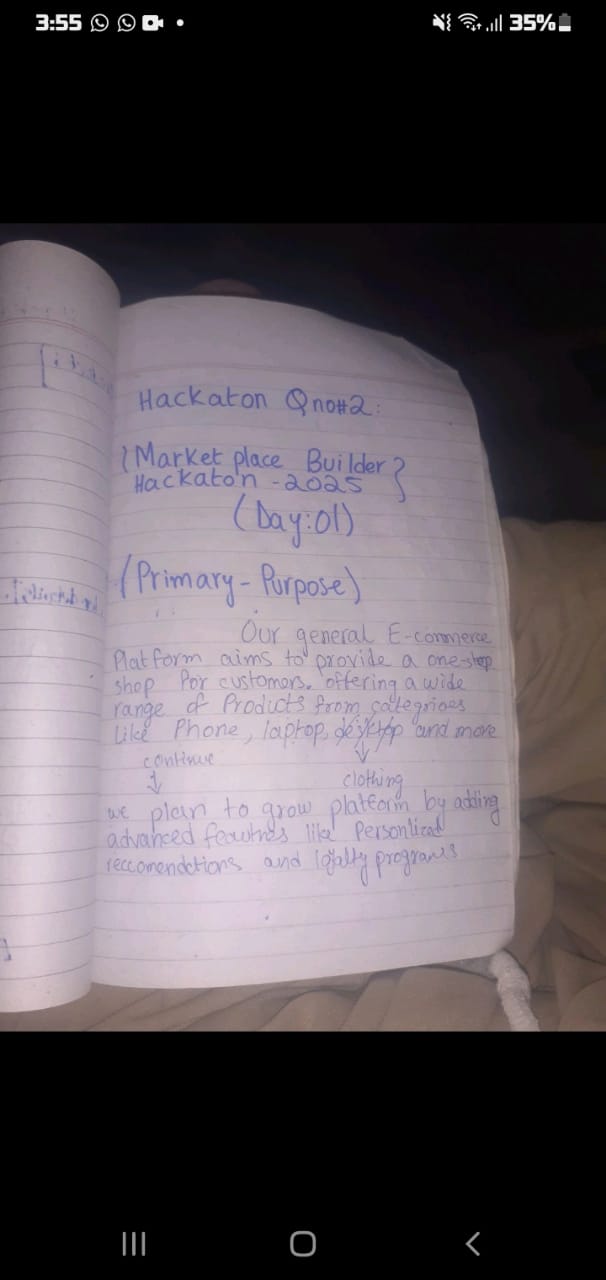 3:55
35%
Hackaton Qno#2:
{Market place Builder
Hackaton -2025}
(Day:01)
(Primary - Purpose)
Our general E-commerce
Platform aims to provide a one-stop
shop For customers. offering a wide
range of Products from
Like Phone, laptop, desktop and more
continue
clothing
we plan to grow platform by adding
advanced like
and programs